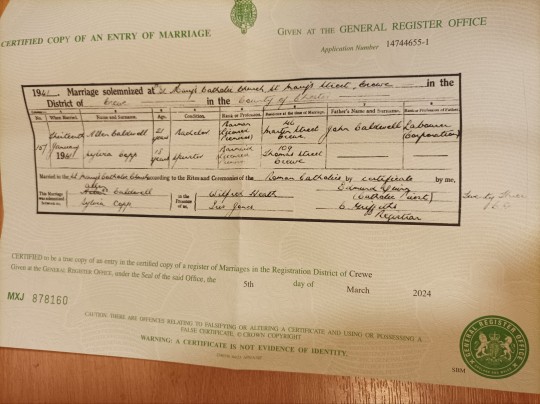 CERTIFIED COPY OF AN ENTRY OF MARRIAGE
GIVEN AT THE GENERAL REGISTER OFFICE
Application Number 14744655-1
1941. Marriage solemnized at St Mary's Catholic Church St Mary's Street, Crewe in the
District of Crewe in the County of
No. When Married. Name and Surname. Age. Condition. Rank or Profession. Residence at the time of Marriage. Father's Name and Surname. Rank or Profession of Father.
167 January 1941 Allen Caldwell 21 years Bachelor 46 Martin Street Crewe John Caldwell Labourer (Corporation)
Sylvia Capp 18 years Spinster 109 Thomas Street Crewe
Married in the St Mary's Catholic Church according to the Rites and Ceremonies of the Roman Catholics by certificate by me,
This Marriage was solemnized between us, Allen Caldwell in the Presence of us, Wilfred Heath Edmund (Catholic Priest)
Sylvia Capp Jones Griffiths Registrar
CERTIFIED to be a true copy of an entry in the certified copy of a register of Marriages in the Registration District of Crewe
Given at the GENERAL REGISTER OFFICE, under the Seal of the said Office, the 5th day of March 2024
MXJ 878160
CAUTION: THERE ARE OFFENCES RELATING TO FALSIFYING OR ALTERING A CERTIFICATE AND USING OR POSSESSING A
FALSE CERTIFICATE. © CROWN COPYRIGHT
WARNING: A CERTIFICATE IS NOT EVIDENCE OF IDENTITY.
GENERAL REGISTER OFFICE